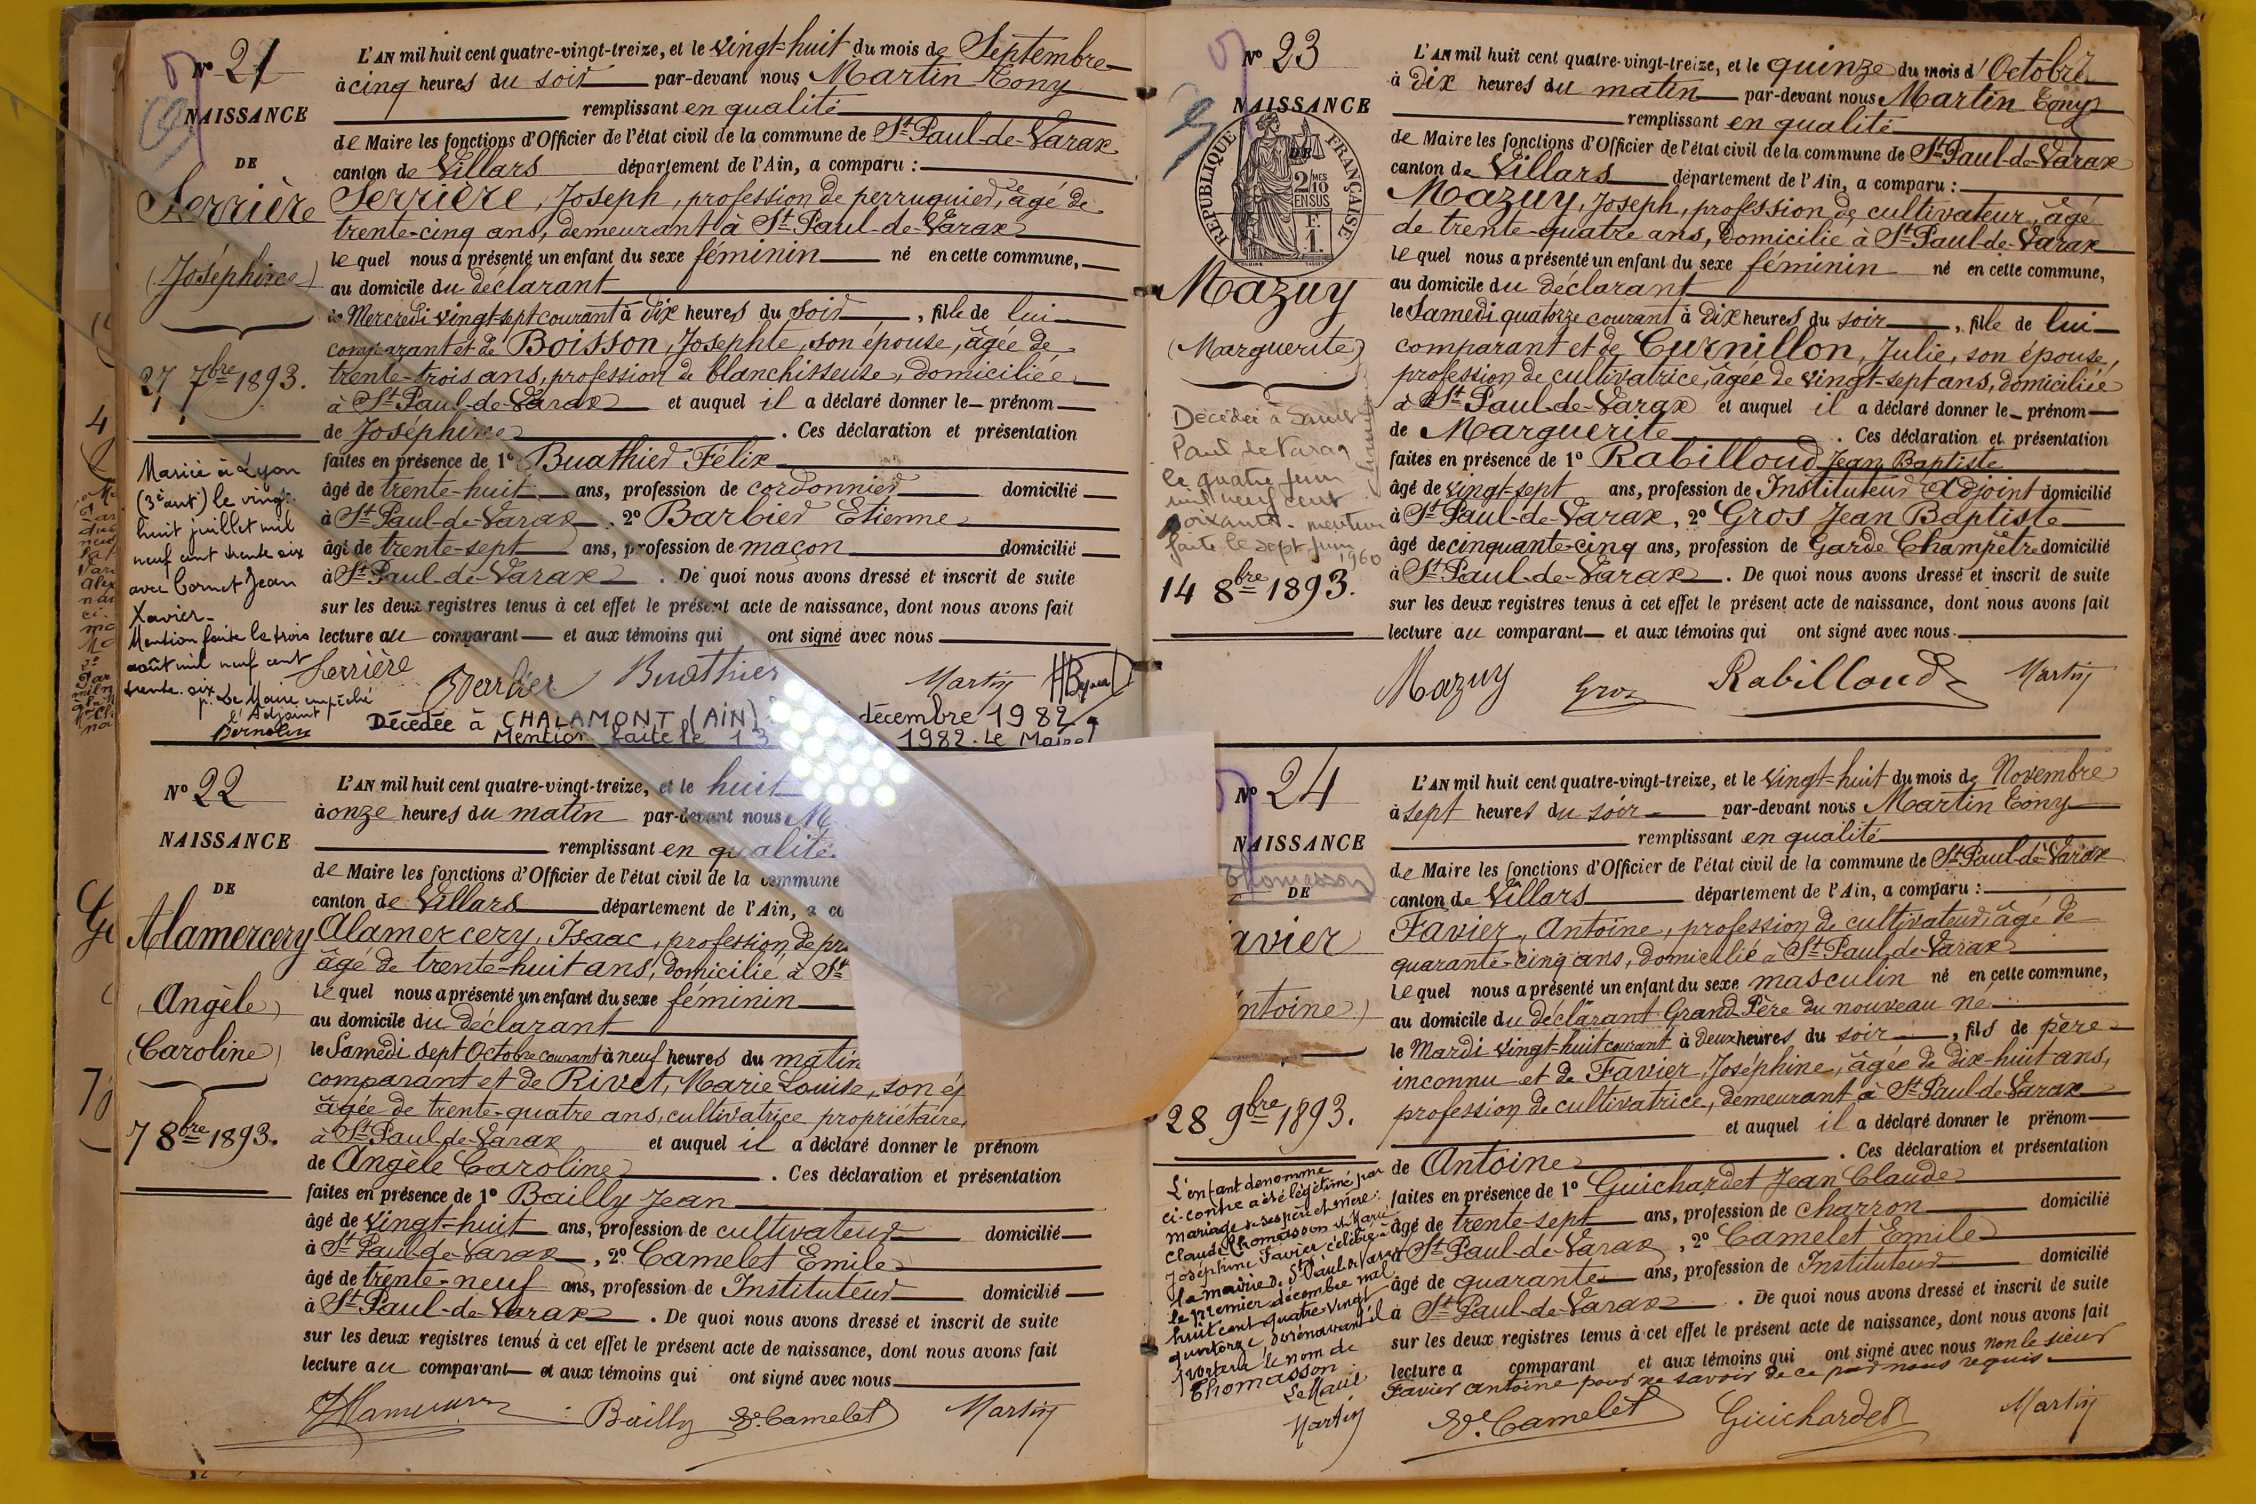 N° 21
NAISSANCE
DE
Serrière
(Joséphine)
27 7bre 1893.
Mariée à Lyon
(3e art) le vingt
huit juillet mil
neuf cent trente six
avec Cornet Jean
Xavier.
Mention faite le trois
août mil neuf cent
trente-six
p. Le Maire empêché
l'Adjoint
L'AN mil huit cent quatre-vingt-treize, et le vingt-huit du mois de Septembre
à cinq heures du soir par-devant nous Martin Tony
remplissant en qualité
de Maire les fonctions d'Officier de l'état civil de la commune de St Paul-de-Varax
canton de Villars département de l'Ain, a comparu :
Serrière, Joseph, profession de perruquier, âgé de
trente-cinq ans, demeurant à St Paul-de-Varax
lequel nous a présenté un enfant du sexe féminin né en cette commune,
au domicile du déclarant
le Mercredi vingt-sept courant à dix heures du soir, fille de lui
comparant et de Boisson, Josephte, son épouse, âgée de
trente-trois ans, profession de blanchisseuse, domiciliée
à St Paul-de-Varax et auquel il a déclaré donner le prénom
de Joséphine. Ces déclaration et présentation
faites en présence de 1° Buathier Félix
âgé de trente-huit ans, profession de cordonnier domicilié
à St Paul-de-Varax, 2° Barbier Etienne
âgé de trente-sept ans, profession de maçon domicilié
à St Paul-de-Varax. De quoi nous avons dressé et inscrit de suite
sur les deux registres tenus à cet effet le présent acte de naissance, dont nous avons fait
lecture au comparant et aux témoins qui ont signé avec nous
Serrière Barbier Buathier Martin
Décédée à CHALAMONT (AIN) décembre 1982
Mention faite le 13 1982. Le Maire
N° 22
NAISSANCE
DE
Alamercery
(Angèle
Caroline)
7 8bre 1893.
L'AN mil huit cent quatre-vingt-treize, et le huit
à onze heures du matin par-devant nous M
remplissant en qualité
de Maire les fonctions d'Officier de l'état civil de la commune
canton de Villars département de l'Ain, a co
Alamercery, Isaac, profession de pr
âgé de trente-huit ans, domicilié à St
lequel nous a présenté un enfant du sexe féminin
au domicile du déclarant
le Samedi sept Octobre courant à neuf heures du matin
comparant et de Rivet, Marie Louise, son ép
âgée de trente-quatre ans, cultivatrice propriétaire,
à St Paul-de-Varax et auquel il a déclaré donner le prénom
de Angèle Caroline. Ces déclaration et présentation
faites en présence de 1° Bailly Jean
âgé de vingt-huit ans, profession de cultivateur domicilié
à St Paul-de-Varax, 2° Camelet Emile
âgé de trente-neuf ans, profession de Instituteur domicilié
à St Paul-de-Varax. De quoi nous avons dressé et inscrit de suite
sur les deux registres tenus à cet effet le présent acte de naissance, dont nous avons fait
lecture au comparant et aux témoins qui ont signé avec nous
Bailly E. Camelet Martin
N° 23
NAISSANCE
DE
RÉPUBLIQUE FRANÇAISE
2/10 MES
EN SUS
F.
1
Mazuy
(Marguerite)
Décédée à Saint
Paul de Varax
le quatre juin
mil neuf cent
soixante. mention
faite le sept juin
1960
14 8bre 1893.
L'AN mil huit cent quatre-vingt-treize, et le quinze du mois d'Octobre
à dix heures du matin par-devant nous Martin Tony
remplissant en qualité
de Maire les fonctions d'Officier de l'état civil de la commune de St Paul-de-Varax
canton de Villars département de l'Ain, a comparu :
Mazuy, Joseph, profession de cultivateur, âgé
de trente-quatre ans, domicilié à St Paul-de-Varax
lequel nous a présenté un enfant du sexe féminin né en cette commune,
au domicile du déclarant
le Samedi quatorze courant à dix heures du soir, fille de lui
comparant et de Curnillon, Julie, son épouse,
profession de cultivatrice, âgée de vingt-sept ans, domiciliée
à St Paul-de-Varax et auquel il a déclaré donner le prénom
de Marguerite. Ces déclaration et présentation
faites en présence de 1° Rabilloud Jean Baptiste
âgé de vingt-sept ans, profession de Instituteur Adjoint domicilié
à St Paul-de-Varax, 2° Gros Jean Baptiste
âgé de cinquante-cinq ans, profession de Garde Champêtre domicilié
à St Paul-de-Varax. De quoi nous avons dressé et inscrit de suite
sur les deux registres tenus à cet effet le présent acte de naissance, dont nous avons fait
lecture au comparant et aux témoins qui ont signé avec nous.
Mazuy Gros Rabilloud Martin
N° 24
NAISSANCE
Thomasson
DE
avier
ntoine)
28 9bre 1893.
L'enfant dénommé
ci-contre a été légitimé par
mariage de ses père et mère:
Claude Thomasson et Marie
Joséphine Favier célébré à
la mairie de St Paul de Varax
le premier décembre mil
huit cent quatre-vingt
quatorze, dorénavant il
portera le nom de
Thomasson.
Le Maire
Martin
L'AN mil huit cent quatre-vingt-treize, et le vingt-huit du mois de Novembre
à sept heures du soir par-devant nous Martin Tony
remplissant en qualité
de Maire les fonctions d'Officier de l'état civil de la commune de St Paul-de-Varax
canton de Villars département de l'Ain, a comparu :
Favier, Antoine, profession de cultivateur, âgé de
quarante-cinq ans, domicilié à St Paul-de-Varax
lequel nous a présenté un enfant du sexe masculin né en cette commune,
au domicile du déclarant Grand Père du nouveau né
le Mardi vingt-huit courant à deux heures du soir, fils de père
inconnu et de Favier, Joséphine, âgée de dix-huit ans,
profession de cultivatrice, demeurant à St Paul-de-Varax
et auquel il a déclaré donner le prénom
de Antoine. Ces déclaration et présentation
faites en présence de 1° Guichardet Jean Claude
âgé de trente-sept ans, profession de charron domicilié
à St Paul-de-Varax, 2° Camelet Emile
âgé de quarante ans, profession de Instituteur domicilié
à St Paul-de-Varax. De quoi nous avons dressé et inscrit de suite
sur les deux registres tenus à cet effet le présent acte de naissance, dont nous avons fait
lecture a comparant et aux témoins qui ont signé avec nous non le sieur
Favier Antoine pour ne savoir de ce par nous requis.
E. Camelet Guichardet Martin